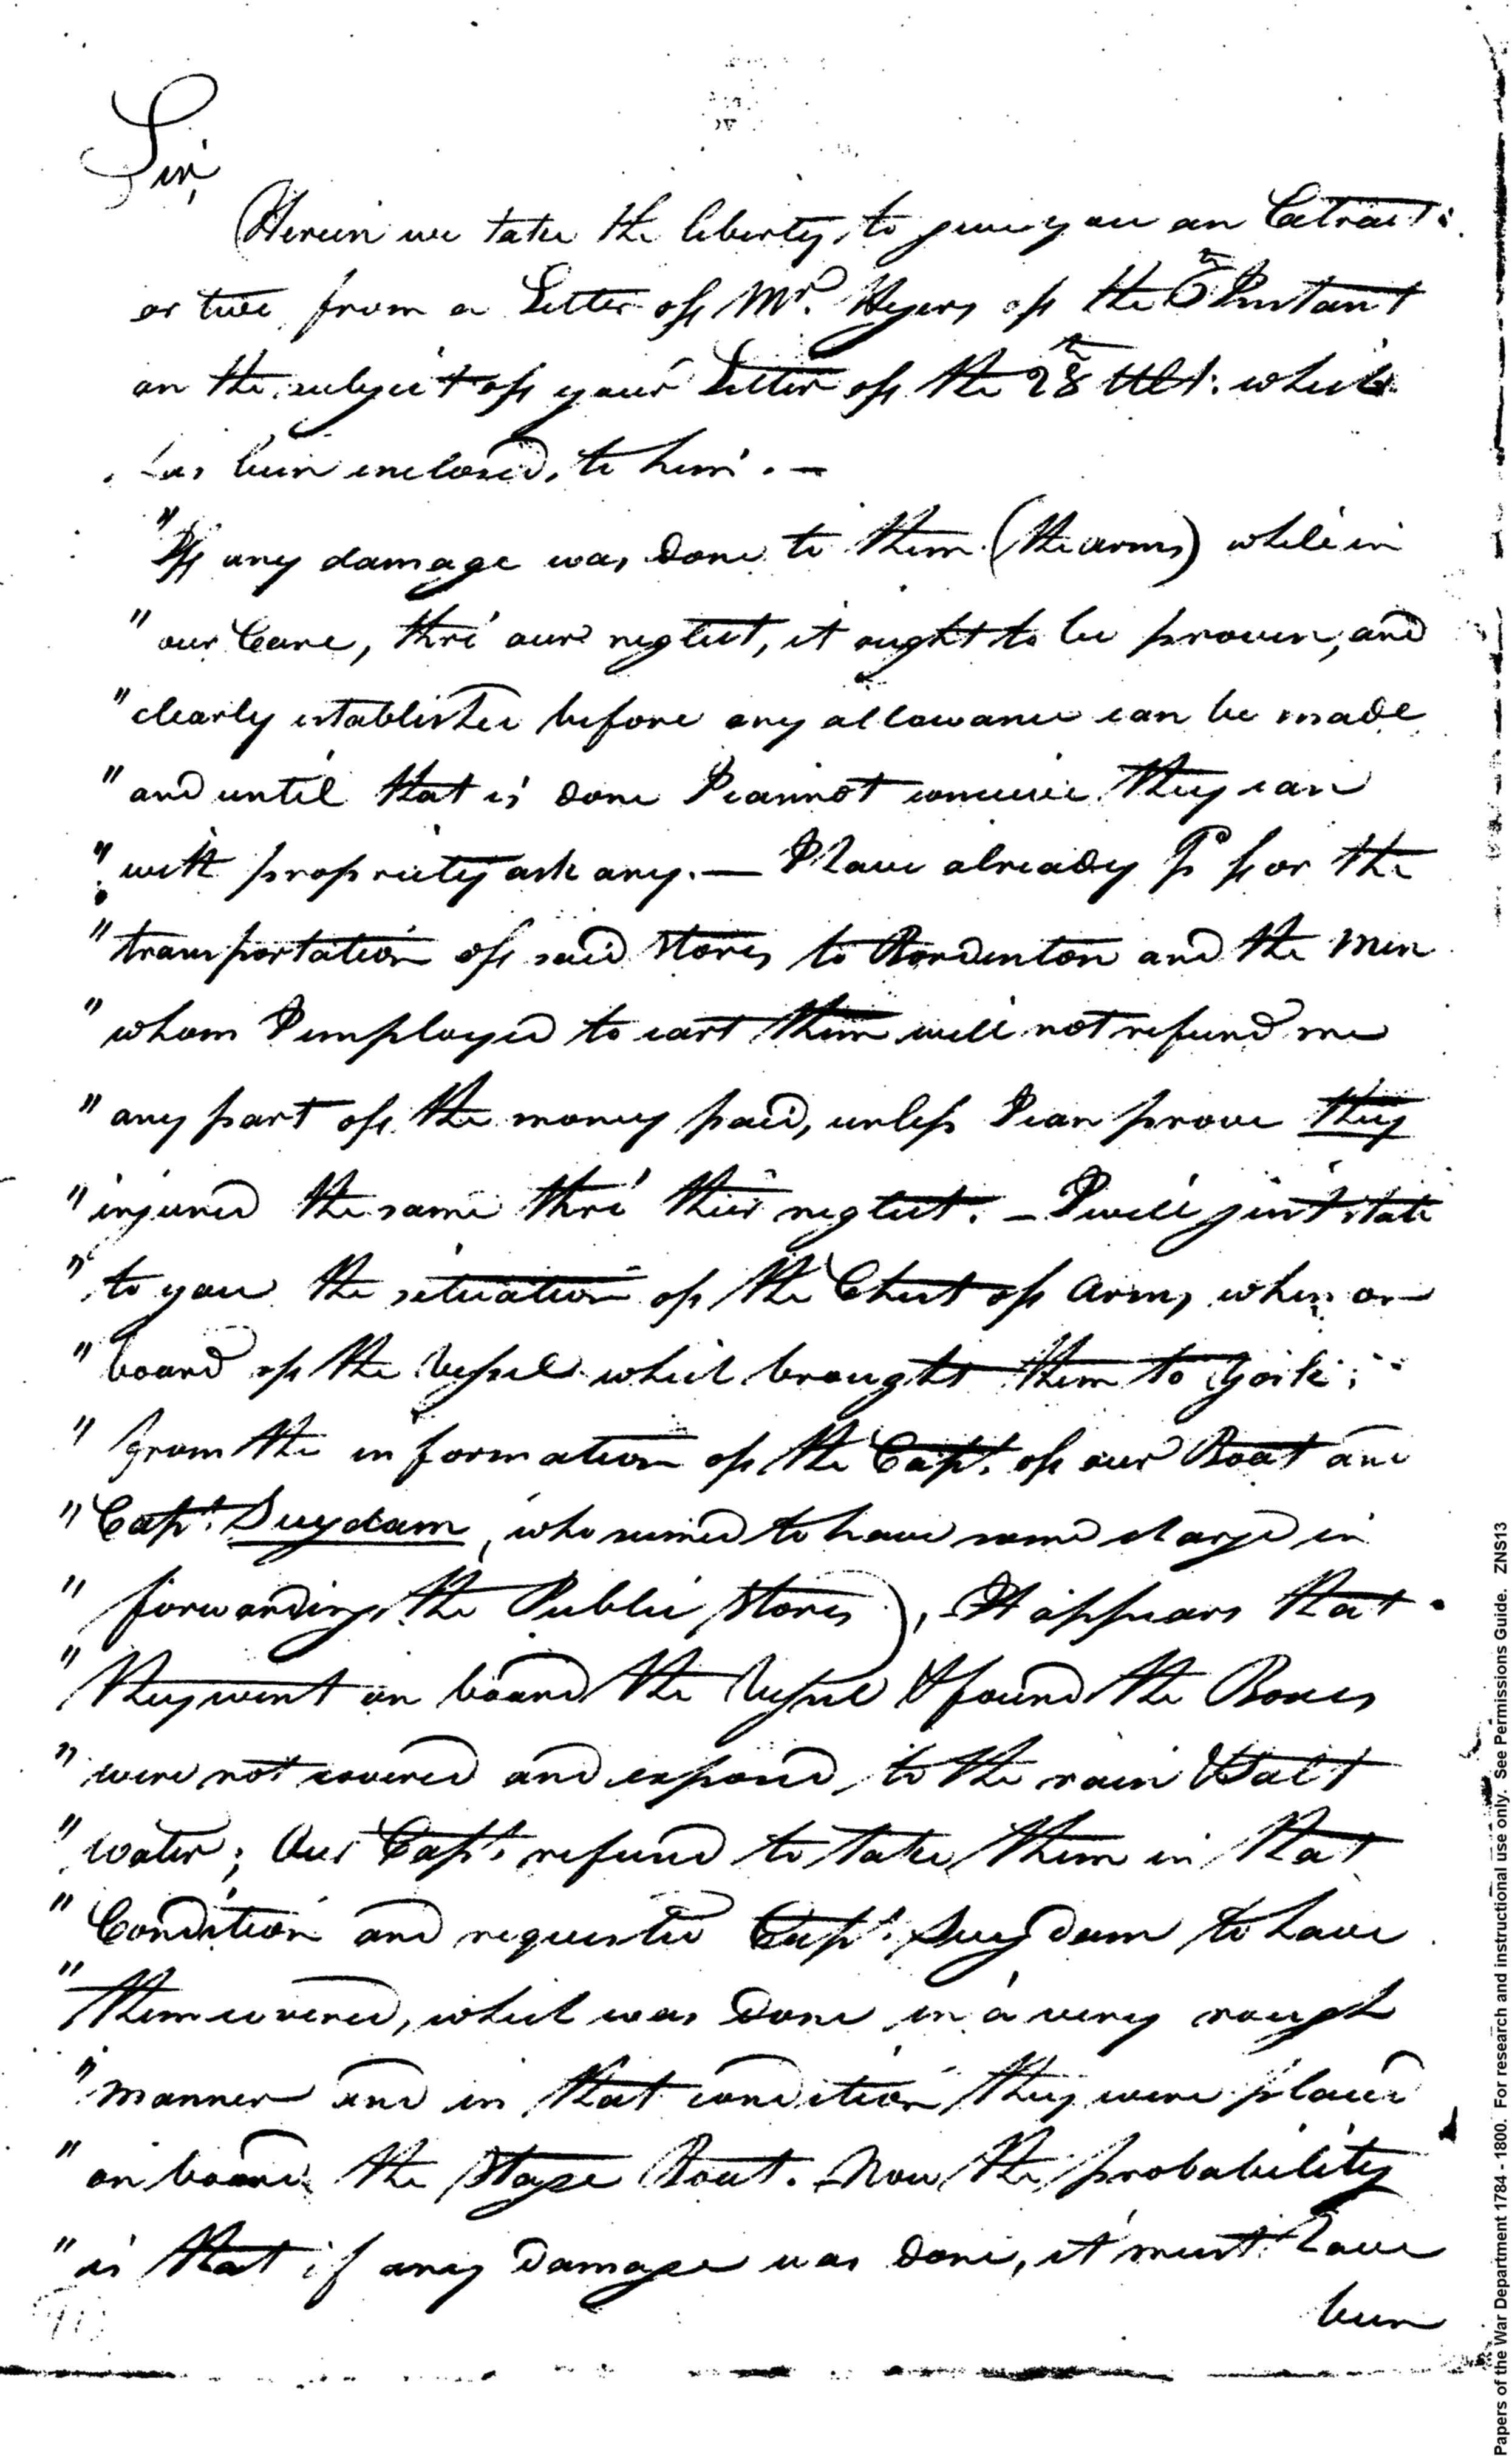 Sir,
Herein we take the liberty, to give you an Extract
or two from a Letter of Mr. Hyers of the 6th Instant
on the subject of your Letter of the 28th Ult. which
has been enclosed, to him. —
"If any damage was done to them (the arms) while in
"our Care, thro' our neglect, it ought to be proven, and
"clearly established before any allowance can be made
"and until that is done I cannot conceive they can
"with propriety ask any. — I have already pd for the
"transportation of said Stores to Bordenton and the men
"whom I employed to cart them will not refund me
"any part of the money paid, unless I can prove they
"injured the same thro' their neglect. — I will just state
"to you the situation of the Chest of Arms, when on
"board of the Vessel which brought them to York;
"from the information of the Capt. of our Boat and
"Capt. Suydam, who seemed to have some charge in
"forwarding the Public Stores), It appears that
"They went on board the Vessel & found the Boxes
"were not covered and exposed, to the rain & Salt
"water; Our Capt. refused to take them in that
"Condition and requested Capt. Suydam to have
"them covered, which was done in a very rough
"manner and in that condition they were placed
"on board the Stage Boat. Now the probability
"is that if any Damage was done, it must have
been
Papers of the War Department 1784 - 1800. For research and instructional use only. See Permissions Guide. ZNS13